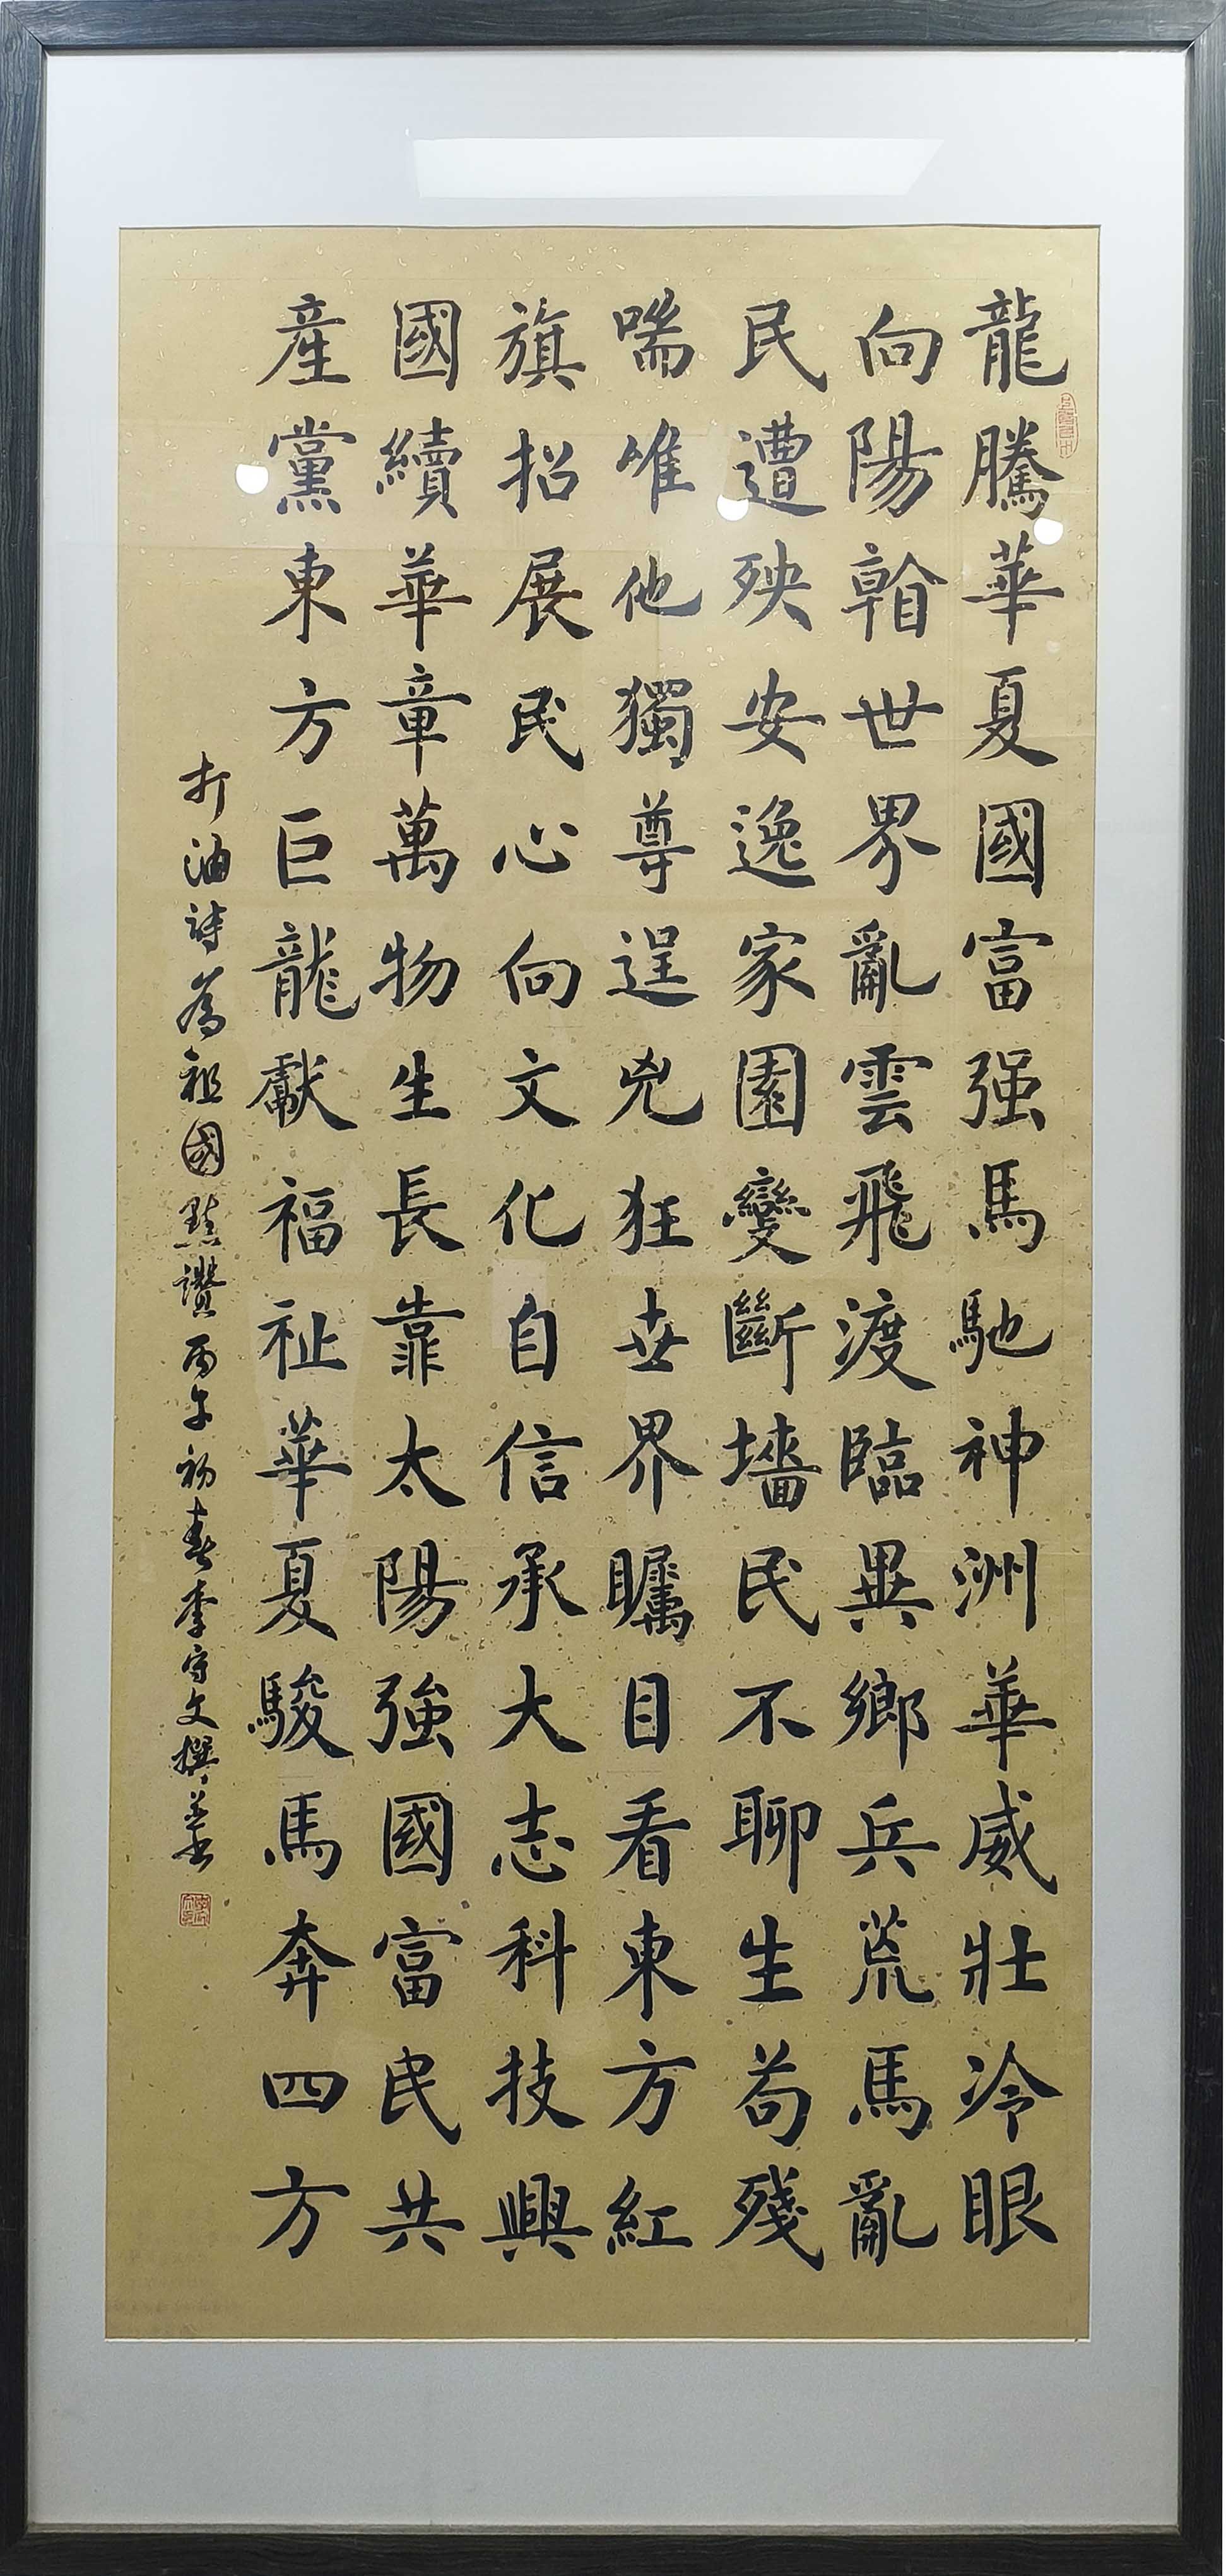 龍騰華夏國富强馬馳神洲華威壯冷眼
向陽世界亂雲飛渡臨異鄉兵荒馬亂
民遭殃安逸家園變斷墻民不聊生苟殘
喘唯他獨尊逞兇狂世界矚目看東方紅
旗招展民心向文化自信承大志科技興
國續華章萬物生長靠太陽強國富民共
産黨東方巨龍獻福祉華夏駿馬奔四方
打油詩為祖國點讚丙午初春李守文撰並書